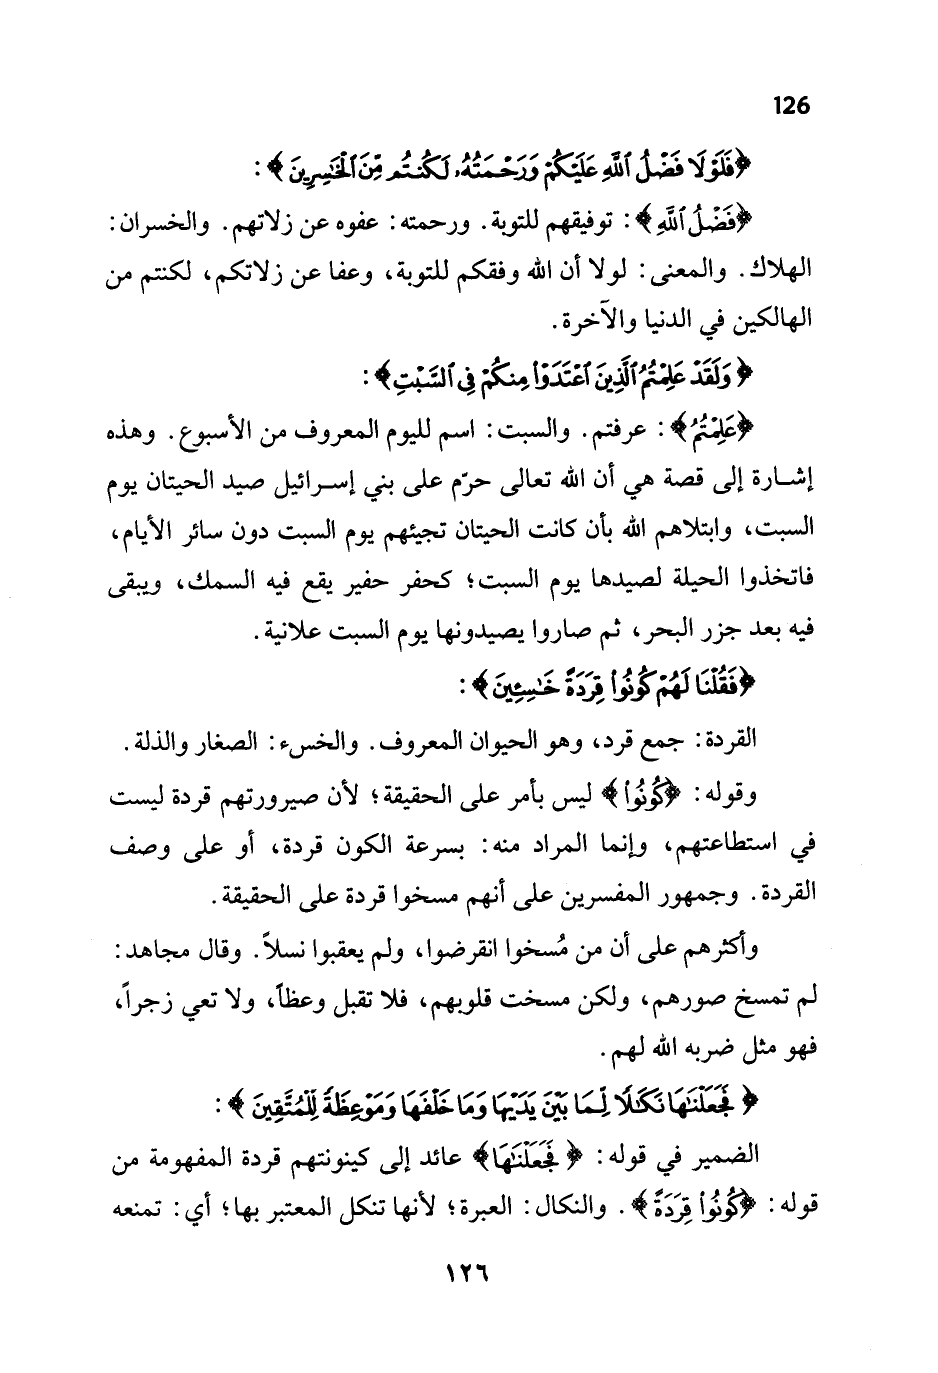 126
﴿فَلَوْلَا فَضْلُ ٱللَّهِ عَلَيْكُمْ وَرَحْمَتُهُۥ لَكُنتُم مِّنَ ٱلْخَٰسِرِينَ﴾:
﴿فَضْلُ ٱللَّهِ﴾: توفيقهم للتوبة. ورحمته: عفوه عن زلاتهم. والخسران:
الهلاك. والمعنى: لولا أن الله وفقكم للتوبة، وعفا عن زلاتكم، لكنتم من
الهالكين في الدنيا والآخرة.
﴿وَلَقَدْ عَلِمْتُمُ ٱلَّذِينَ ٱعْتَدَوْا۟ مِنكُمْ فِى ٱلسَّبْتِ﴾:
﴿عَلِمْتُمُ﴾: عرفتم. والسبت: اسم لليوم المعروف من الأسبوع. وهذه
إشارة إلى قصة هي أن الله تعالى حرّم على بني إسرائيل صيد الحيتان يوم
السبت، وابتلاهم الله بأن كانت الحيتان تجيئهم يوم السبت دون سائر الأيام،
فاتخذوا الحيلة لصيدها يوم السبت؛ كحفر حفير يقع فيه السمك، ويبقى
فيه بعد جزر البحر، ثم صاروا يصيدونها يوم السبت علانية.
﴿فَقُلْنَا لَهُمْ كُونُوا۟ قِرَدَةً خَٰسِـِٔينَ﴾:
القردة: جمع قرد، وهو الحيوان المعروف. والخسء: الصغار والذلة.
وقوله: ﴿كُونُوا۟﴾ ليس بأمر على الحقيقة؛ لأن صيرورتهم قردة ليست
في استطاعتهم، وإنما المراد منه: بسرعة الكون قردة، أو على وصف
القردة. وجمهور المفسرين على أنهم مسخوا قردة على الحقيقة.
وأكثرهم على أن من مُسخوا انقرضوا، ولم يعقبوا نسلاً. وقال مجاهد:
لم تمسخ صورهم، ولكن مسخت قلوبهم، فلا تقبل وعظاً، ولا تعي زجراً،
فهو مثل ضربه الله لهم.
﴿فَجَعَلْنَٰهَا نَكَٰلًا لِّمَا بَيْنَ يَدَيْهَا وَمَا خَلْفَهَا وَمَوْعِظَةً لِّلْمُتَّقِينَ﴾:
الضمير في قوله: ﴿فَجَعَلْنَٰهَا﴾ عائد إلى كينونتهم قردة المفهومة من
قوله: ﴿كُونُوا۟ قِرَدَةً﴾. والنكال: العبرة؛ لأنها تنكل المعتبر بها؛ أي: تمنعه
١٢٦